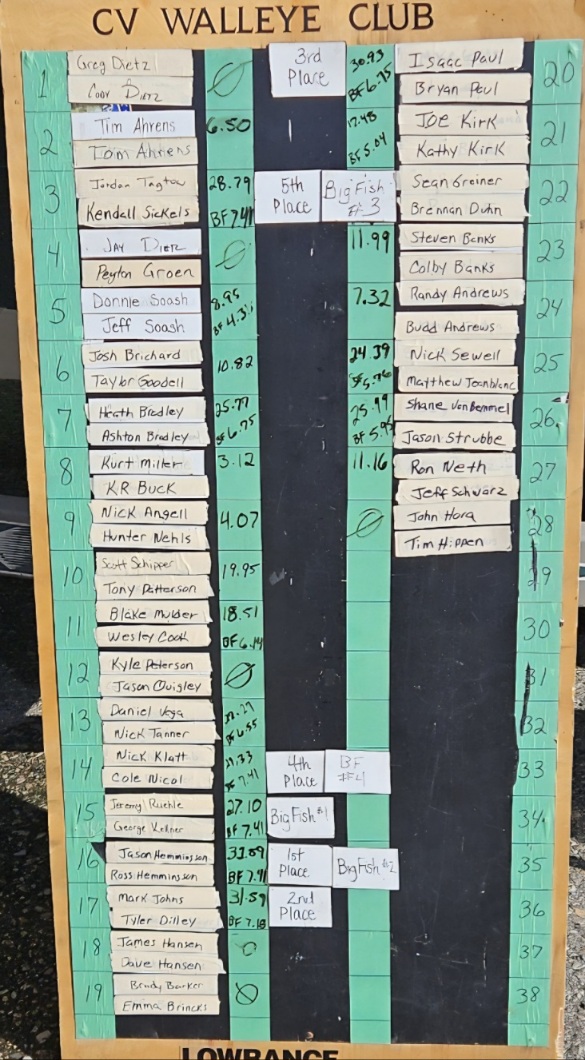 CV WALLEYE CLUB
1
Greg Dietz
Cody Dietz
2
Tim Ahrens
Tom Ahrens
6.50
3
Jordan Tagtow
Kendall Sickels
28.79
BF 7.41
5th Place
Big Fish #3
4
Jay Dietz
Peyton Groen
5
Donnie Soash
Jeff Soash
8.95
6
Josh Brichard
Taylor Goodell
10.82
7
Heath Bradley
Ashton Bradley
25.77
BF 6.75
8
Kurt Miller
KR Buck
3.12
9
Nick Angell
Hunter Nehls
4.07
10
Scott Schipper
Tony Patterson
19.95
11
Blake Mulder
Wesley Cook
18.51
BF 6.14
12
Kyle Peterson
Jason Quigley
13
Daniel Vega
Nick Tanner
BF 6.55
14
Nick Klatt
Cole Nicol
4th Place
BF #4
15
Jeremy Ruehle
George Kellner
27.10
BF 7.41
Big Fish #1
16
Jason Hemmingson
Ross Hemmingson
BF 7.91
1st Place
Big Fish #2
17
Mark Johns
Tyler Dilley
31.59
BF 7.18
2nd Place
18
James Hansen
Dave Hansen
19
Brady Barker
Emma Brincks
3rd Place
30.93
BF 6.75
Isaac Paul
Bryan Paul
20
17.48
BF 5.04
Joe Kirk
Kathy Kirk
21
Sean Greiner
Brennan Duhn
22
11.99
Steven Banks
Colby Banks
23
7.32
Randy Andrews
Budd Andrews
24
24.39
Nick Sewell
Matthew Jeanblanc
25
25.99
BF 5.95
Shane VonBemmel
Jason Strubbe
26
11.16
Ron Neth
Jeff Schwarz
27
John Hora
Tim Hippen
28
29
30
31
32
33
34
35
36
37
38
LOWRANCE